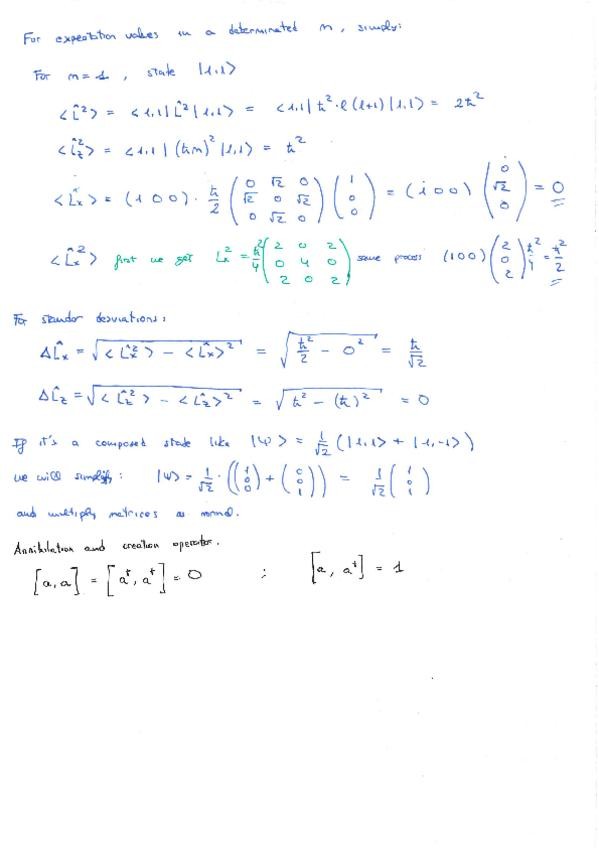 For expectation values in a determinated m, simply:
For m=1, state |1,1>
<L̂²> = <1,1|L̂²|1,1> = <1,1|ħ²·l(l+1)|1,1> = 2ħ²
<L̂z²> = <1,1|(ħm)²|1,1> = ħ²
<L̂x> = (1 0 0)· ħ/2 (0 √2 0 / √2 0 √2 / 0 √2 0) (1 / 0 / 0) = (1 0 0) (0 / √2 / 0) = 0
<L̂x²> first we get Lx² = ħ²/4 (2 0 2 / 0 4 0 / 2 0 2) same process (1 0 0) (2 / 0 / 2) ħ²/4 = ħ²/2
For standar desviations:
ΔL̂x = √(<L̂x²> - <L̂x>²) = √(ħ²/2 - 0²) = ħ/√2
ΔL̂z = √(<L̂z²> - <L̂z>²) = √(ħ² - (ħ)²) = 0
If it's a composed state like |ψ> = 1/√2 (|1,1> + |1,-1>)
we will simplify: |ψ> = 1/√2 · ((1 / 0 / 0) + (0 / 0 / 1)) = 1/√2 (1 / 0 / 1)
and multiply matrices as normal.
Annihilation and creation operator.
[a,a] = [a†,a†] = 0 ; [a, a†] = 1